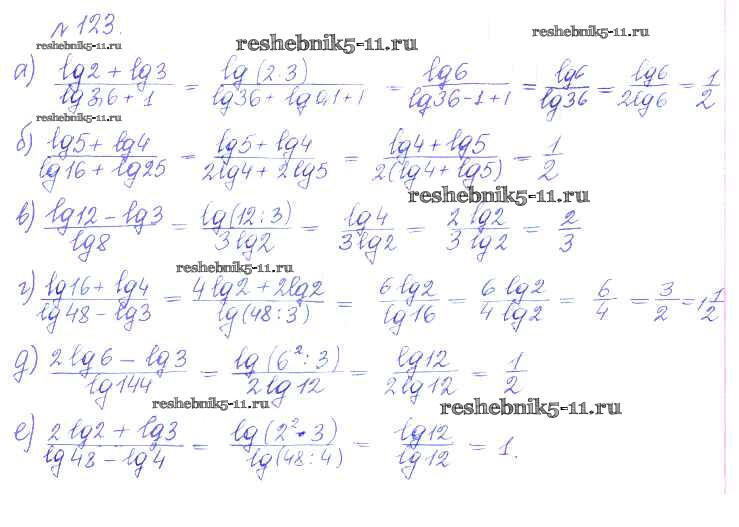 № 123.
reshebnik5-11.ru
reshebnik5-11.ru
reshebnik5-11.ru
а) (lg2 + lg3)/(lg3,6 + 1) = lg(2·3)/(lg36 + lg0,1 + 1) = lg6/(lg36 - 1 + 1) = lg6/lg36 = lg6/2lg6 = 1/2
reshebnik5-11.ru
б) (lg5 + lg4)/(lg16 + lg25) = (lg5 + lg4)/(2lg4 + 2lg5) = (lg4 + lg5)/(2(lg4 + lg5)) = 1/2
reshebnik5-11.ru
в) (lg12 - lg3)/lg8 = lg(12:3)/3lg2 = lg4/3lg2 = 2lg2/3lg2 = 2/3
reshebnik5-11.ru
г) (lg16 + lg4)/(lg48 - lg3) = (4lg2 + 2lg2)/lg(48:3) = 6lg2/lg16 = 6lg2/4lg2 = 6/4 = 3/2 = 1 1/2
д) (2lg6 - lg3)/lg144 = lg(6²:3)/2lg12 = lg12/2lg12 = 1/2
reshebnik5-11.ru
reshebnik5-11.ru
е) (2lg2 + lg3)/(lg48 - lg4) = lg(2²·3)/lg(48:4) = lg12/lg12 = 1.